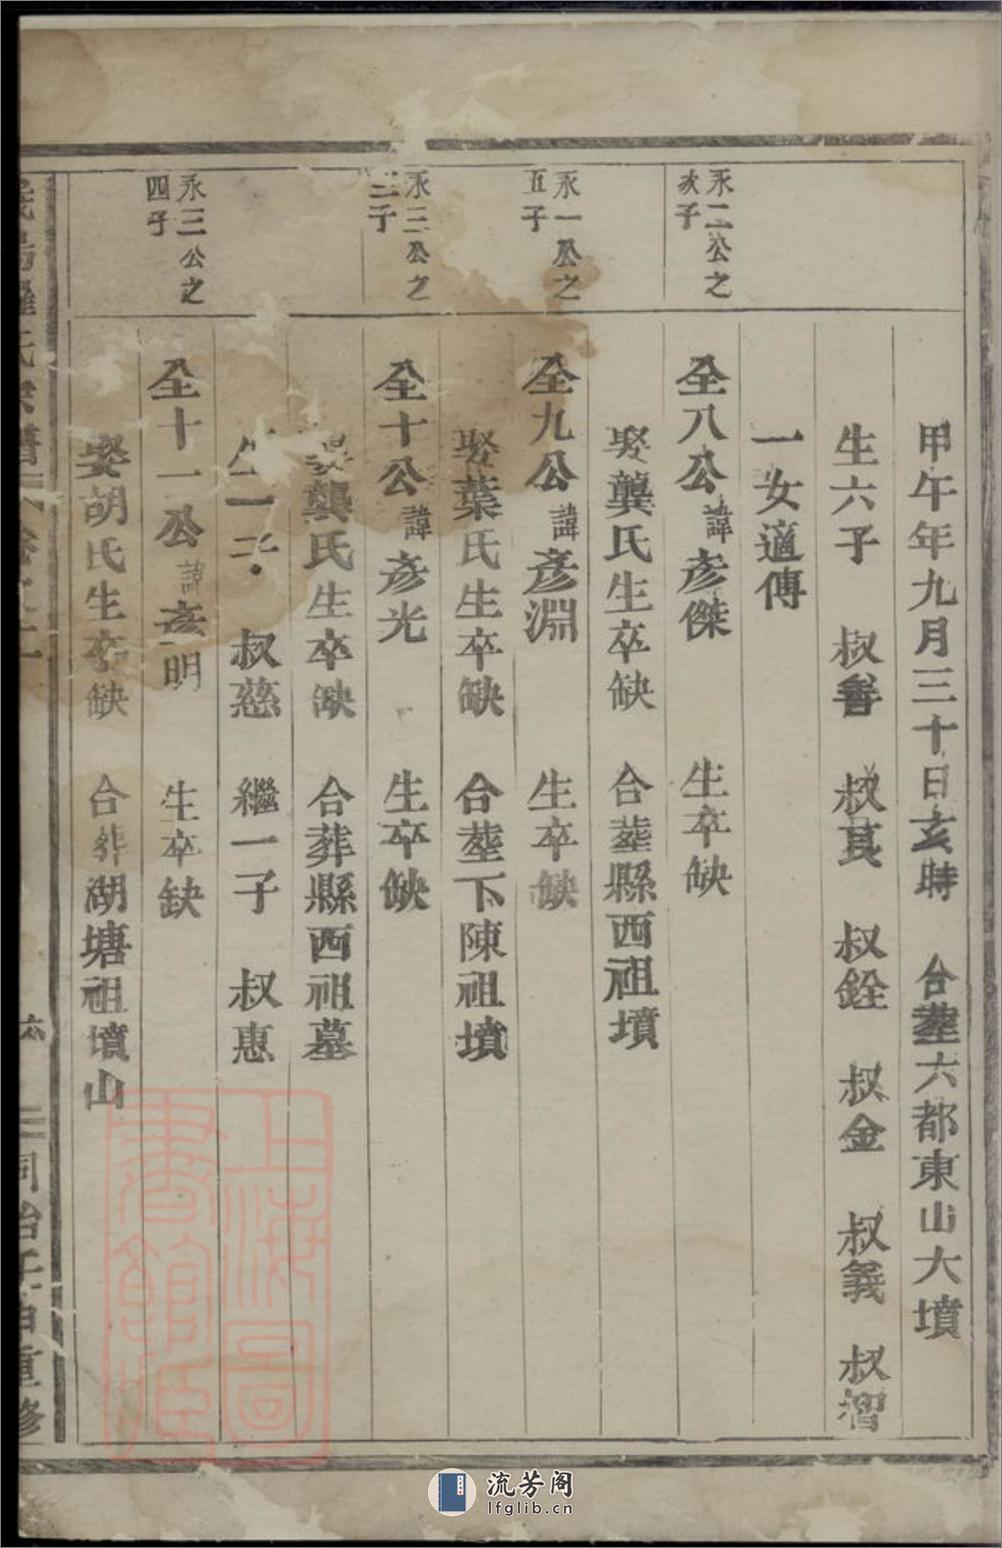 甲午年九月三十日亥時 合塟六都東山大墳
生六子 叔善 叔莨 叔銓 叔金 叔義 叔
一女適傳
永二公之
次子
全八公諱彥傑 生卒缺
娶龔氏生卒缺 合塟縣西祖墳
永一公之
五子
全九公諱彥淵 生卒缺
娶葉氏生卒缺 合塟下陳祖墳
永三公之
三子
全十公諱彥光 生卒缺
娶龔氏生卒缺 合葬縣西祖墓
生一子 叔慈 繼一子 叔惠
永三公之
四子
全十一公諱彥明 生卒缺
娶胡氏生卒缺 合葬湖塘祖墳山
氏宗譜 卷之
同治壬申重修
上海圖書館藏
流芳阁
lfglib.cn